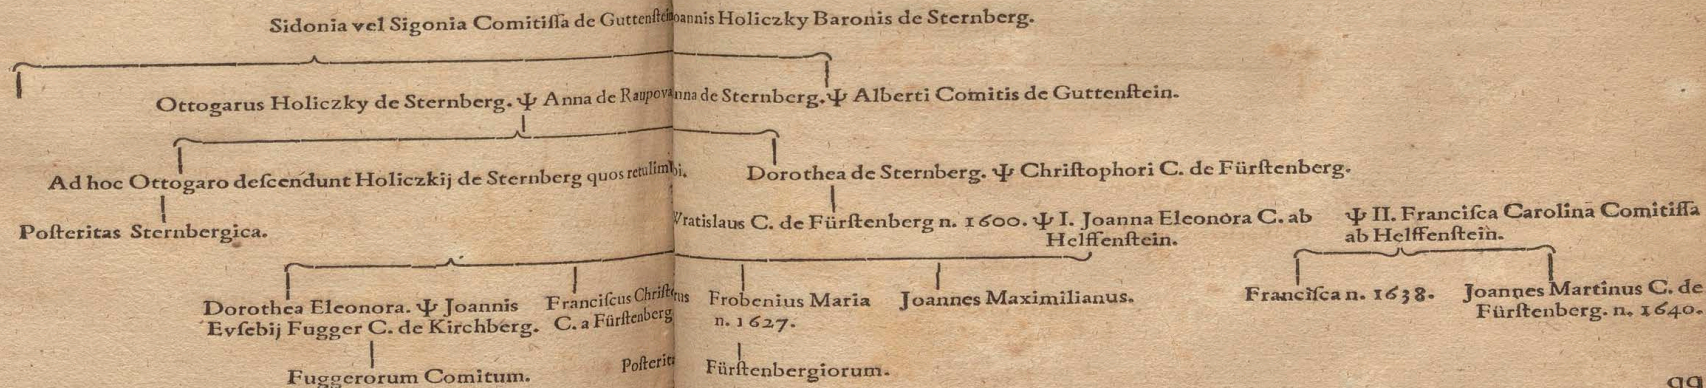 Sidonia vel Sigonia Comitiſſa de Guttenſtein oannis Holiczky Baronis de Sternberg.
Ottogarus Holiczky de Sternberg. Ψ Anna de Raupova nna de Sternberg. Ψ Alberti Comitis de Guttenſtein.
Ad hoc Ottogaro deſcendunt Holiczkij de Sternberg quos bi.
Dorothea de Sternberg. Ψ Chriſtophori C. de Fürſtenberg.
Poſteritas Sternbergica.
Wratislaus C. de Fürſtenberg n. 1600. Ψ I. Joanna Eleonora C. ab
Helffenſtein.
Ψ II. Franciſca Carolina Comitiſſa
ab Helffenſtein.
Dorothea Eleonora. Ψ Joannis
Evſebij Fugger C. de Kirchberg.
Franciſcus Chriſt rus
C. a Fürſtenberg
Frobenius Maria
n. 1627.
Joannes Maximilianus.
Franciſca n. 1638.
Joannes Martinus C. de
Fürſtenberg. n. 1640.
Fuggerorum Comitum.
Poſterit Fürſtenbergiorum.